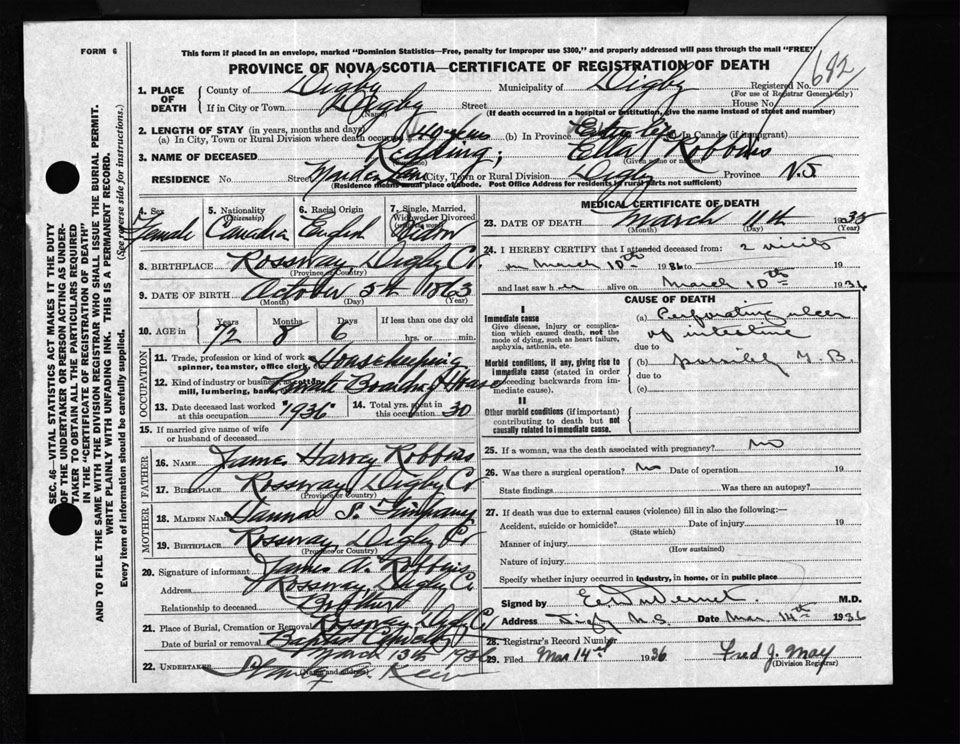 FORM 6
This form if placed in an envelope, marked "Dominion Statistics—Free, penalty for improper use $300," and properly addressed will pass through the mail "FREE"
PROVINCE OF NOVA SCOTIA—CERTIFICATE OF REGISTRATION OF DEATH
682
1. PLACE OF DEATH
County of Digby Municipality of Digby Registered No.
(For use of Registrar General only)
If in City or Town Digby Street House No.
(Name) (If death occurred in a hospital or institution, give the name instead of street and number)
2. LENGTH OF STAY (in years, months and days)
(a) In City, Town or Rural Division where death occurred (b) In Province Entire life (c) In Canada (if immigrant)
3. NAME OF DECEASED Ella Robbins
(Given name or names)
RESIDENCE No. Street City, Town or Rural Division Digby Province N.S.
(Residence means usual place of abode. Post Office Address for residents in rural parts not sufficient)
4. Sex Female
5. Nationality (Citizenship) Canadian
6. Racial Origin English
7. Single, Married, Widowed or Divorced (write the word)
8. BIRTHPLACE Rossway Digby Co.
(Province or Country)
9. DATE OF BIRTH October 5th 1863
(Month) (Day) (Year)
10. AGE in Years Months Days If less than one day old
72 8 6 hrs. or min.
OCCUPATION
11. Trade, profession or kind of work as spinner, teamster, office clerk, Housekeeping
12. Kind of industry or business, as cotton mill, lumbering, bank, Private Boarding House
13. Date deceased last worked at this occupation 1936
14. Total yrs. spent in this occupation 30
15. If married give name of wife or husband of deceased
FATHER
16. NAME James Harvey Robbins
17. BIRTHPLACE Rossway Digby Co.
(Province or Country)
MOTHER
18. MAIDEN NAME
19. BIRTHPLACE Rossway Digby Co
(Province or Country)
20. Signature of informant James A. Robbins
Address Rossway Digby Co.
Relationship to deceased Brother
21. Place of Burial, Cremation or Removal Rossway Digby Co
Baptist Cemetery
Date of burial or removal March 13th 1936
22. UNDERTAKER
(Name and address)
MEDICAL CERTIFICATE OF DEATH
23. DATE OF DEATH March 11th 1936
(Month) (Day) (Year)
24. I HEREBY CERTIFY that I attended deceased from: 2 visits
on March 10th 1936 to
and last saw h alive on March 10th 1936
CAUSE OF DEATH
I
Immediate cause
Give disease, injury or complication which caused death, not the mode of dying, such as heart failure, asphyxia, asthenia, etc.
(a) Perforating ulcer of intestine
due to
Morbid conditions, if any, giving rise to immediate cause (stated in order proceeding backwards from immediate cause)
(b) possibly T.B.
due to
(c)
II
Other morbid conditions (if important) contributing to death but not causally related to immediate cause.
25. If a woman, was the death associated with pregnancy? no
26. Was there a surgical operation? No Date of operation 19
State findings Was there an autopsy?
27. If death was due to external causes (violence) fill in also the following:—
Accident, suicide or homicide? Date of injury 19
(State which)
Manner of injury
(How sustained)
Nature of injury
Specify whether injury occurred in industry, in home, or in public place
Signed by M.D.
Address Digby N.S. Date Mar. 14th 1936
28. Registrar's Record Number
29. Filed Mar 14th 1936 Fred J. May
(Division Registrar)
SEC. 46—VITAL STATISTICS ACT MAKES IT THE DUTY
OF THE UNDERTAKER OR PERSON ACTING AS UNDERTAKER TO OBTAIN ALL THE PARTICULARS REQUIRED
IN THE "CERTIFICATE OF REGISTRATION OF DEATH"
AND TO FILE THE SAME WITH THE DIVISION REGISTRAR WHO SHALL ISSUE THE BURIAL PERMIT.
WRITE PLAINLY WITH UNFADING INK. THIS IS A PERMANENT RECORD.
Every item of information should be carefully supplied. (See reverse side for instructions.)